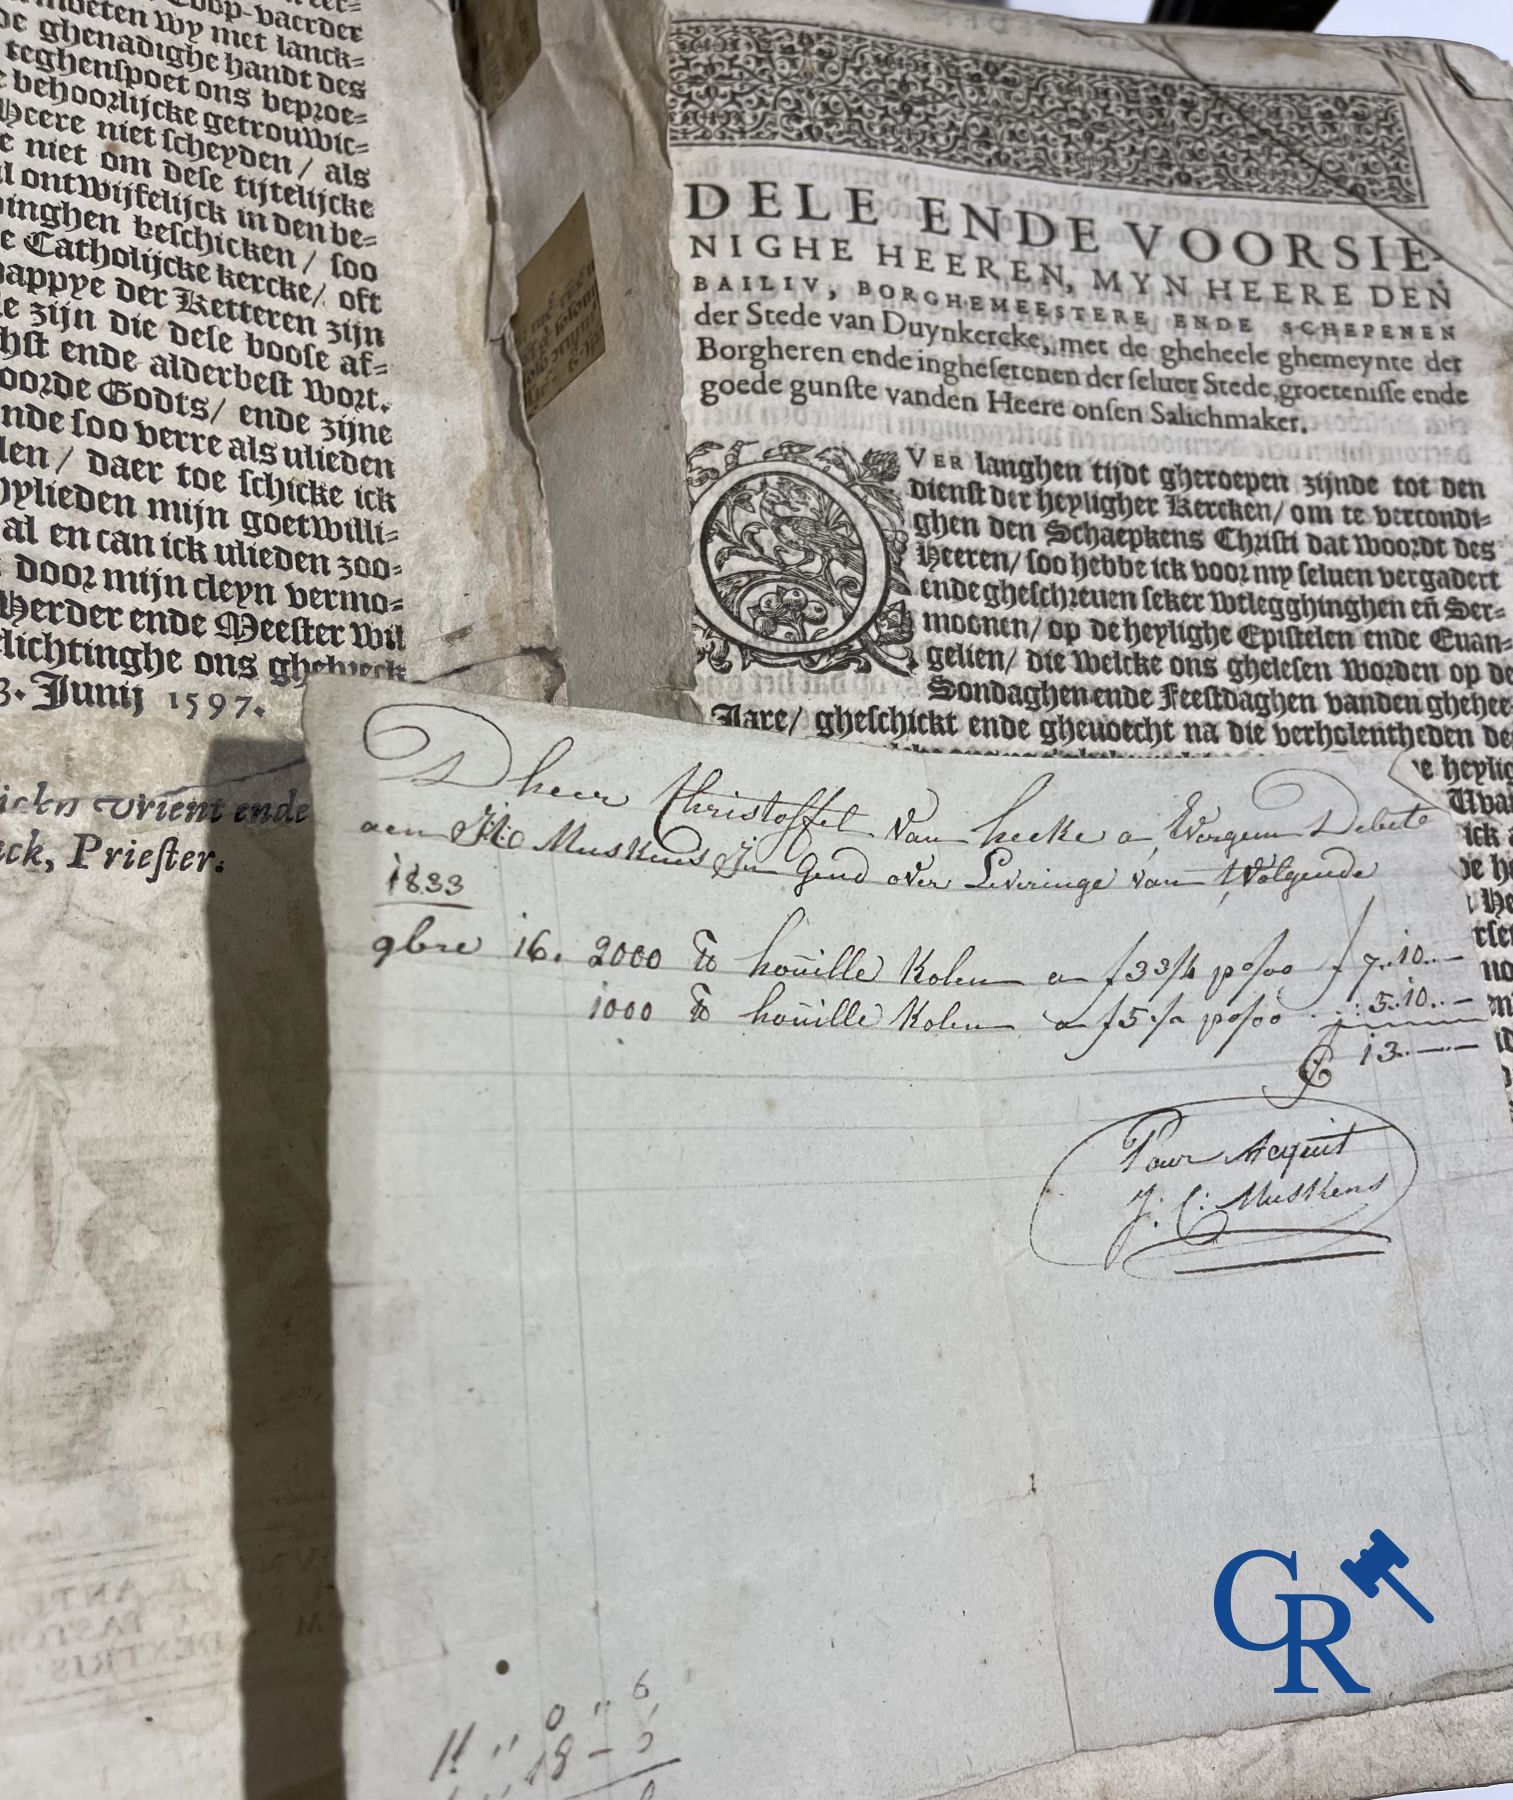 Coop-vaerder
moeten wy met lanck-
de ghenadighe handt des
teghenspoet ons beproe-
behoorlijcke getrouwic-
Heere niet scheyden / als
niet om dese tijtelijcke
ontwijfelijck in den be-
inghen beschicken / soo
e Catholijcke kercke / oft
happye der Ketteren zijn
e zijn die dese boose af-
hst ende alderbest wort.
oorde Godts / ende zijne
nde soo verre als ulieden
len / daer toe schicke ick
hylieden mijn goetwilli-
al en can ick ulieden zoo-
door mijn cleyn vermo-
Herder ende Meester wil
lichtinghe ons
3. Junij 1597.
vrient ende
ck, Priester.
DELE ENDE VOORSIE-
NIGHE HEEREN, MYN HEERE DEN
BAILIV, BORGHEMEESTERE ENDE SCHEPENEN
der Stede van Duynkercke, met de gheheele ghemeynte der
Borgheren ende inghesetenen der seluer Stede, groetenisse ende
goede gunste vanden Heere onsen Salichmaker.
OVER langhen tijdt gheroepen zijnde tot den
dienst der heyligher Kercken / om te vercondi-
ghen den Schaepkens Christi dat woordt des
Heeren / soo hebbe ick voor my seluen vergadert
ende gheschreuen seker wtlegghinghen eñ Ser-
moonen / op de heylighe Epistelen ende Euan-
gelien / die welcke ons ghelesen worden op de
Sondaghen ende Feestdaghen vanden ghehee-
Jare / gheschickt ende gheuoecht na die verholentheden de
e heylig
Dheer Christoffel Van hecke a Evergem Debet
aen J:C Muskens In Gend over Leveringe van t Volgende
1833
9bre 16. 2000 ℔ houille Kolen a f 3 3/4 po/oo f 7..10..—
1000 ℔ houille Kolen a f 5 1/2 po/oo .. 5..10..—
f 13..—..—
Pour Acquit
J. C. Muskens
11 " 0 " 6
18 - 6
GR